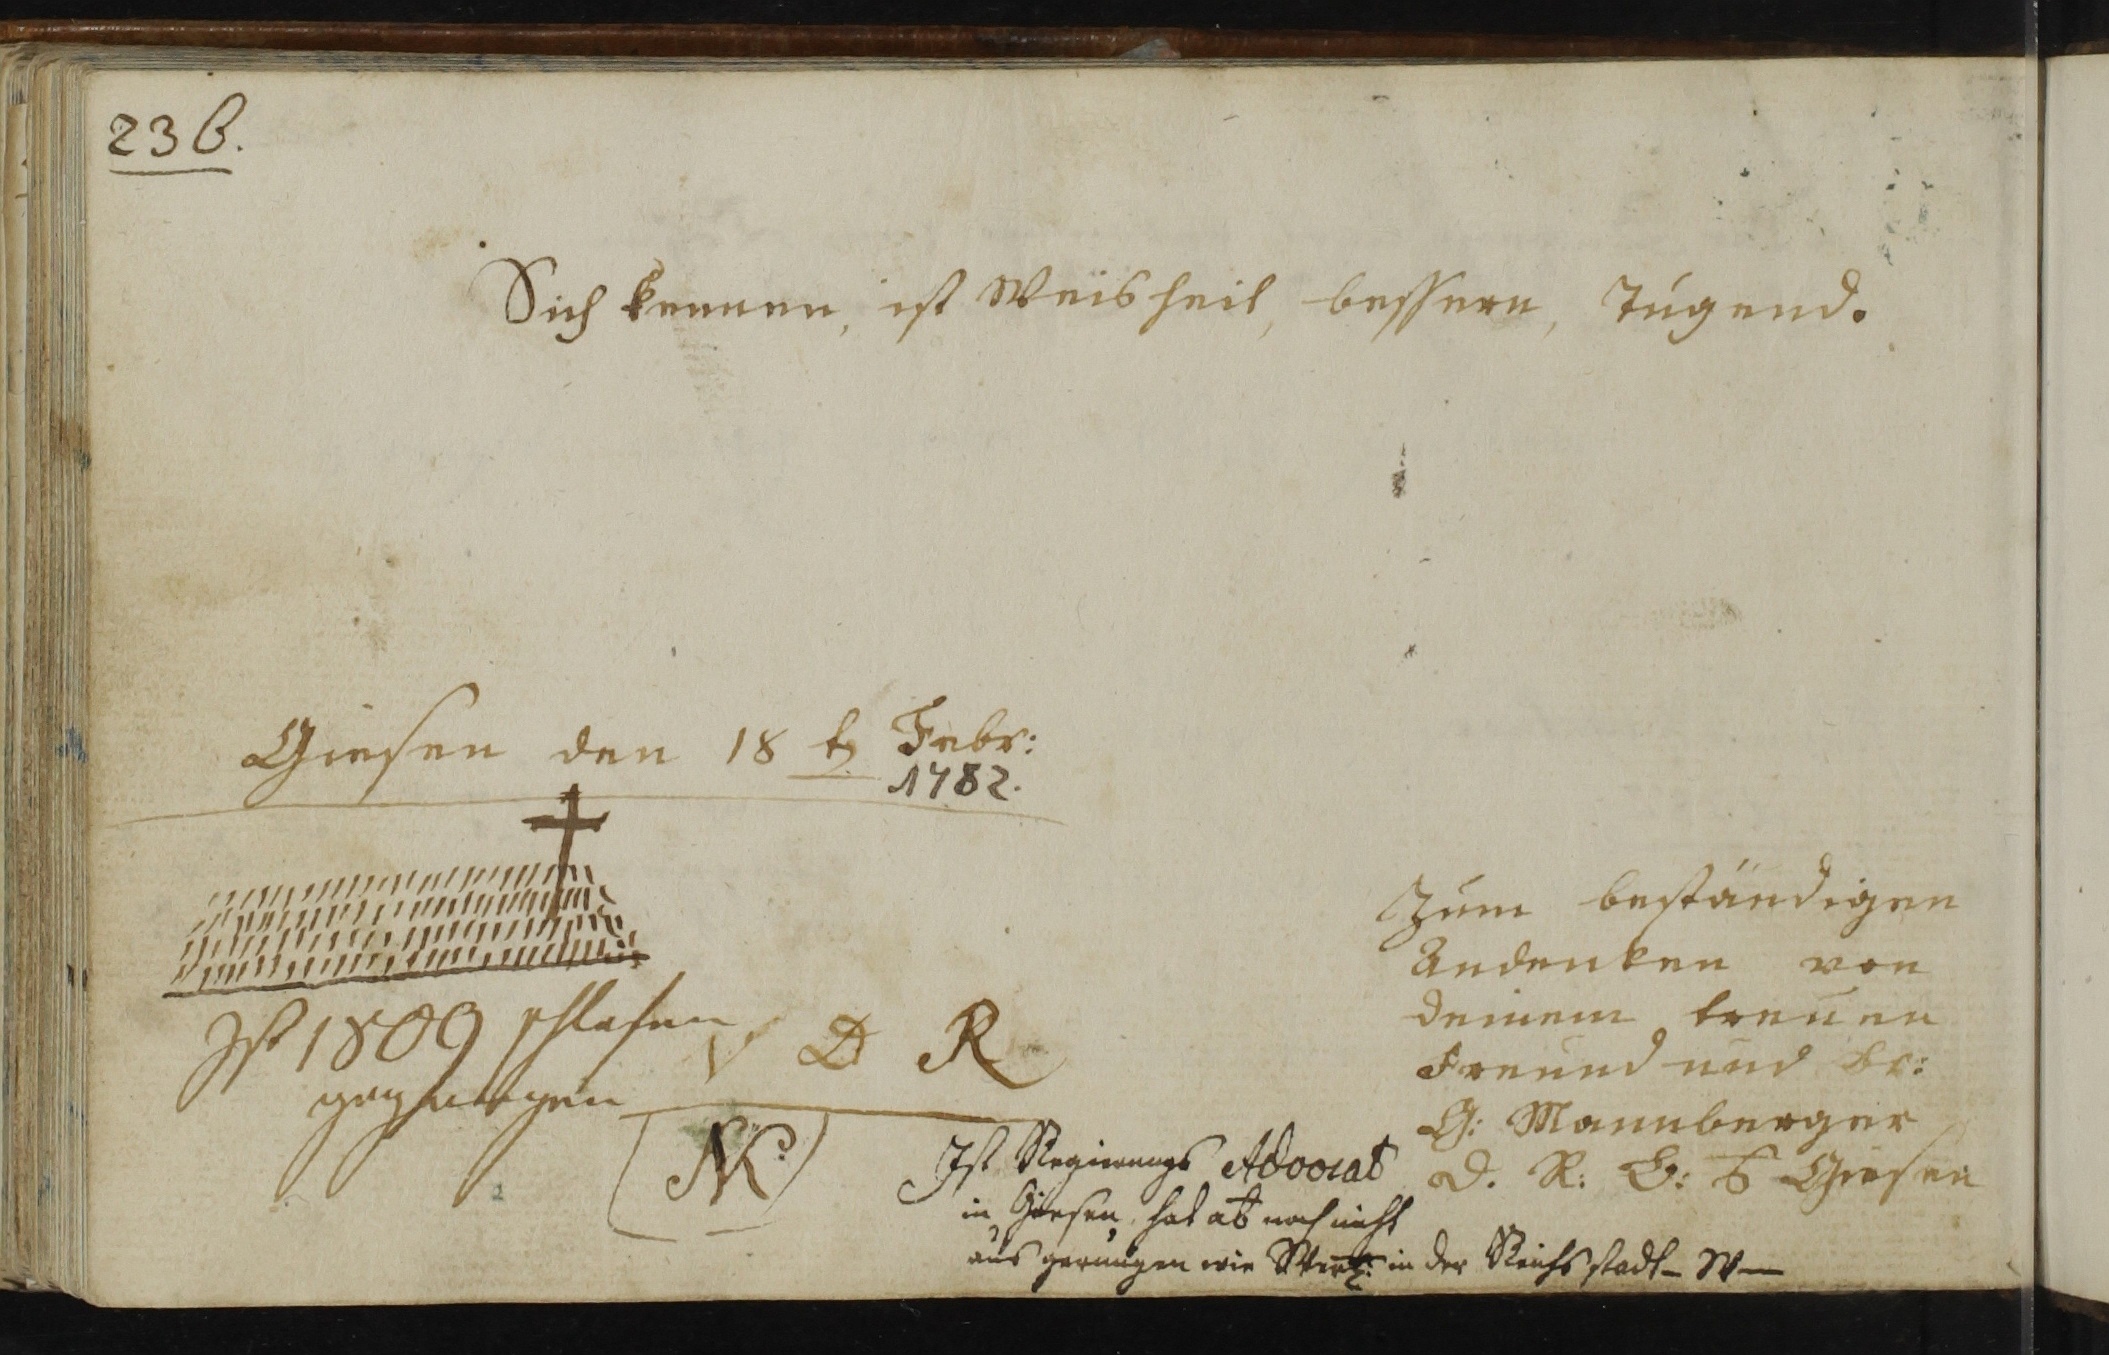 23 b.
Sich kennen, ist Weisheit, bessern, Tugend.
Giesen den 18 t Febr:
1782.
Zum beständigen
Andenken von
deinem treuen
Freund und Br:
G: Mannberger
D. R. B: S Giesen
Ist 1809 schlafen
gegangen
V D R
Ist Regierungs Advocat
in Giesen, hat ab noch nicht
aus gerungen wie in der Reichsstadt - W—